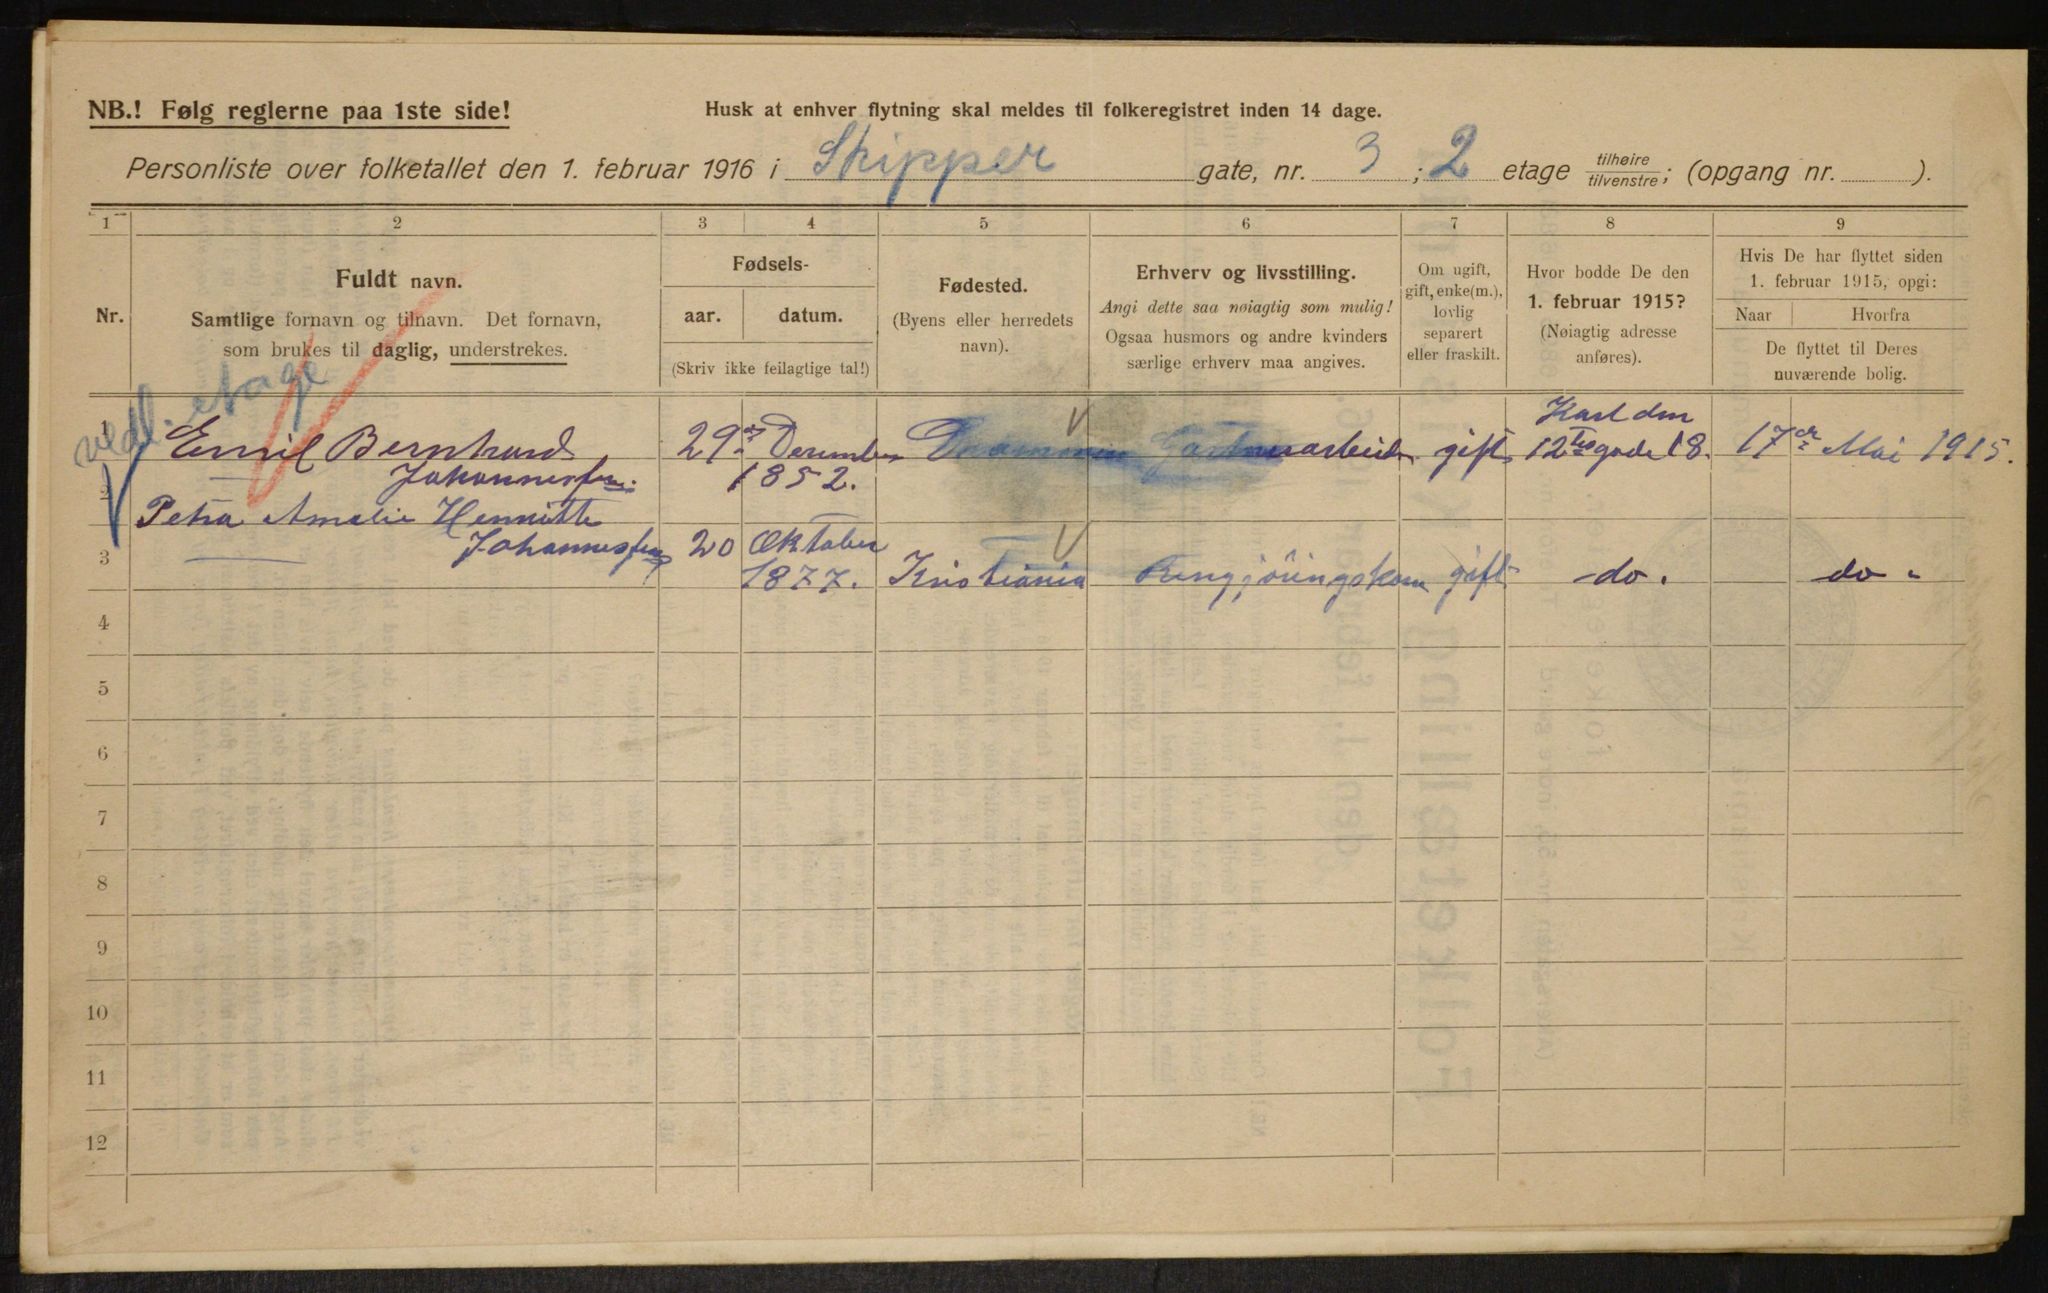 NB.! Følg reglerne paa 1ste side!
Husk at enhver flytning skal meldes til folkeregistret inden 14 dage.
Personliste over folketallet den 1. februar 1916 i Skipper gate, nr. 3 ; 2 etage tilhøire/tilvenstre; (opgang nr. ).
1 2 3 4 5 6 7 8 9
Nr.
Fuldt navn.
Samtlige fornavn og tilnavn. Det fornavn,
som brukes til daglig, understrekes.
Fødsels-
aar. datum.
(Skriv ikke feilagtige tal!)
Fødested.
(Byens eller herredets
navn).
Erhverv og livsstilling.
Angi dette saa nøiagtig som mulig!
Ogsaa husmors og andre kvinders
særlige erhverv maa angives.
Om ugift,
gift, enke(m.),
lovlig
separert
eller fraskilt.
Hvor bodde De den
1. februar 1915?
(Nøiagtig adresse
anføres).
Hvis De har flyttet siden
1. februar 1915, opgi:
Naar Hvorfra
De flyttet til Deres
nuværende bolig.
vedl. etage
Karl den
1 Emil Bernhard 29de December Drammen Gartnerarbeider gift 12tes gade 18. 17de Mai 1915.
2 Johannesen. 1852.
Petra Amalie Henriette
3 Johannesen 20 Oktober
1877. Kristiania Rengjöringskone gift -do. do.
4
5
6
7
8
9
10
11
12